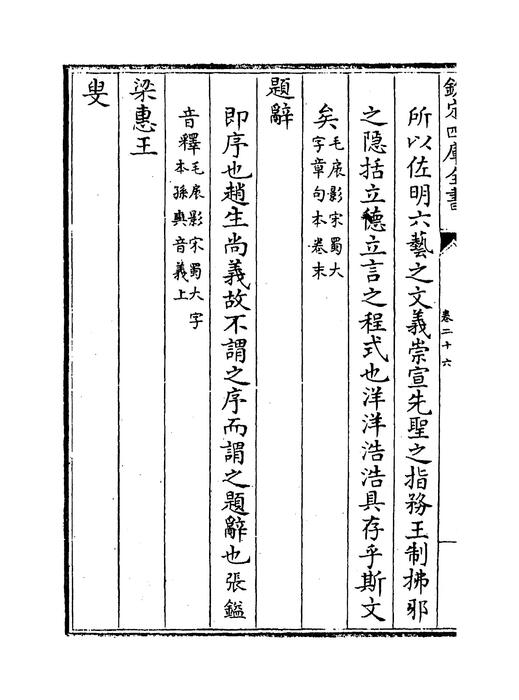 欽定四庫全書
卷二十六
所以佐明六藝之文義崇宣先聖之指務王制拂邪
之隱括立德立言之程式也洋洋浩浩具存乎斯文
矣毛扆影宋蜀大字章句本卷末
題辭
即序也趙生尚義故不謂之序而謂之題辭也張鎰
音釋毛扆影宋蜀大字本孫奭音義上
梁惠王
叟